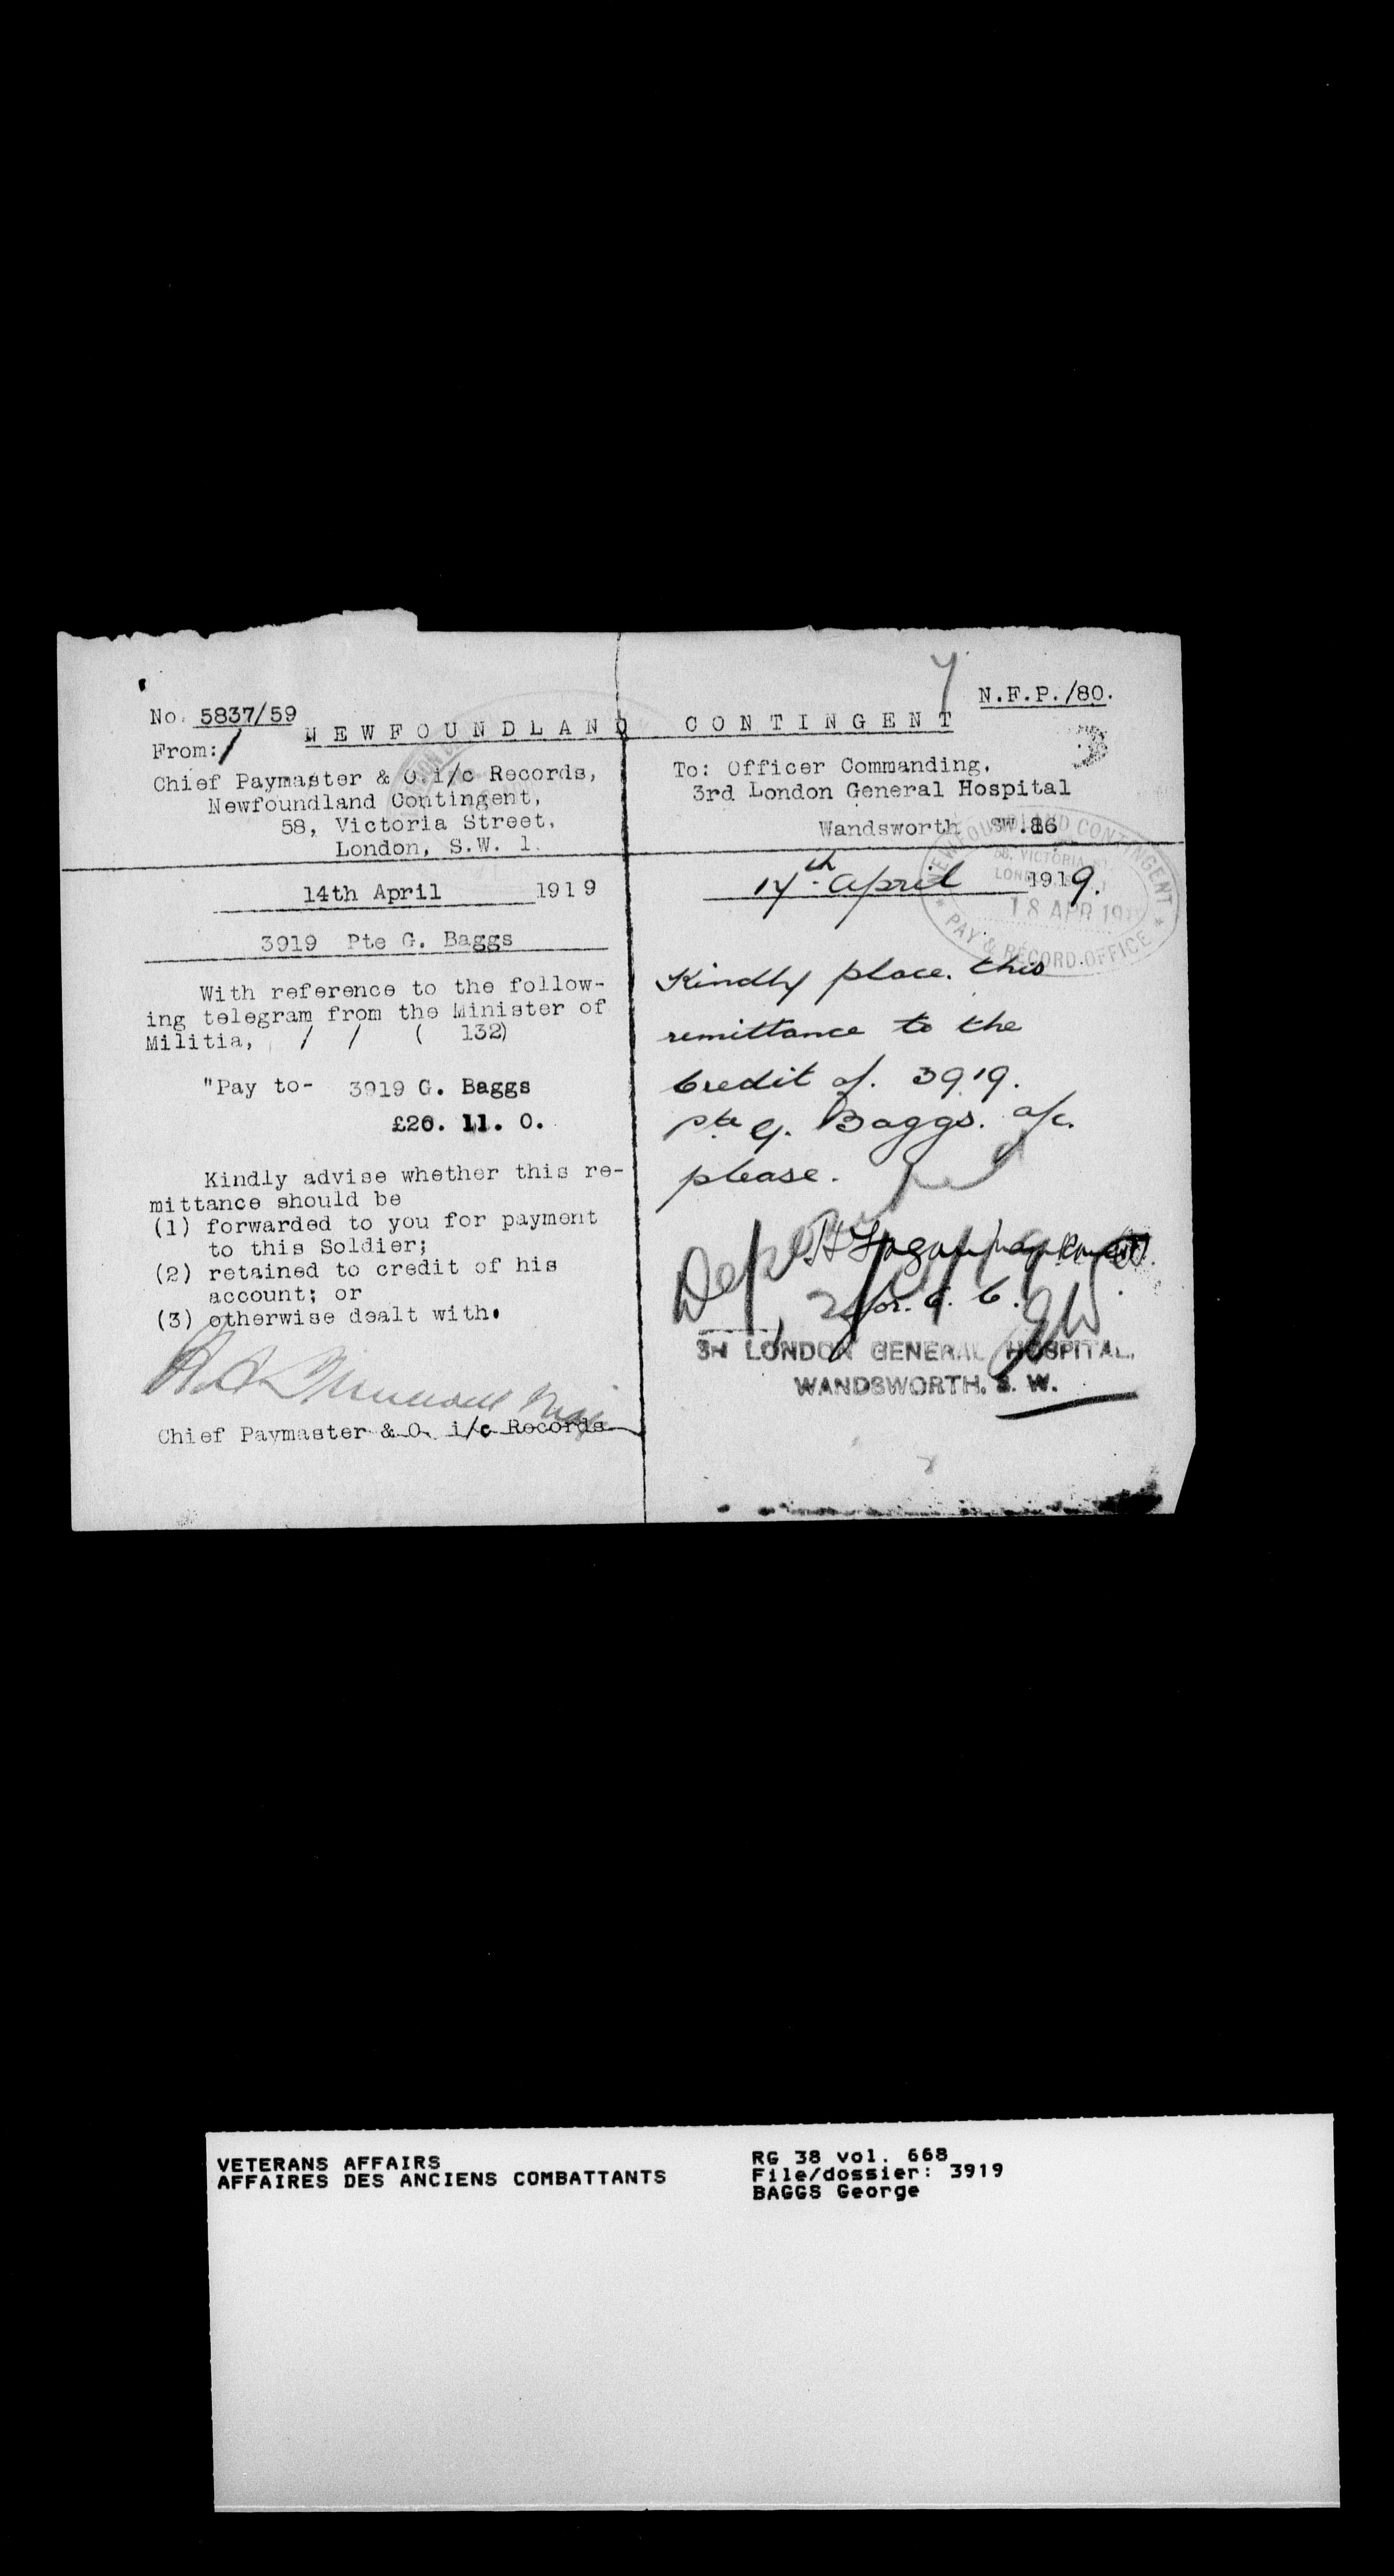 N.F.P./80.
No. 5837/59
NEWFOUNDLAND CONTINGENT
From:
Chief Paymaster & O. i/c Records,
Newfoundland Contingent,
58, Victoria Street,
London, S.W. 1.
14th April 1919
3919 Pte G. Baggs
With reference to the follow-
ing telegram from the Minister of
Militia, / / ( 132)
"Pay to- 3919 G. Baggs
£20. 11. 0.
Kindly advise whether this re-
mittance should be
(1) forwarded to you for payment
to this Soldier;
(2) retained to credit of his
account; or
(3) otherwise dealt with.
Chief Paymaster & O. i/c Records
To: Officer Commanding,
3rd London General Hospital
Wandsworth SW.
17th April 1919.
NEWFOUNDLAND CONTINGENT
58, VICTORIA ST.
18 APR 1919
PAY & RECORD OFFICE
Kindly place this
remittance to the
Credit of. 3919.
Pte G. Baggs. a/c.
please.
for. O. C.
LONDON GENERAL HOSPITAL.
WANDSWORTH. S. W.
VETERANS AFFAIRS
AFFAIRES DES ANCIENS COMBATTANTS
RG 38 vol. 668
File/dossier: 3919
BAGGS George